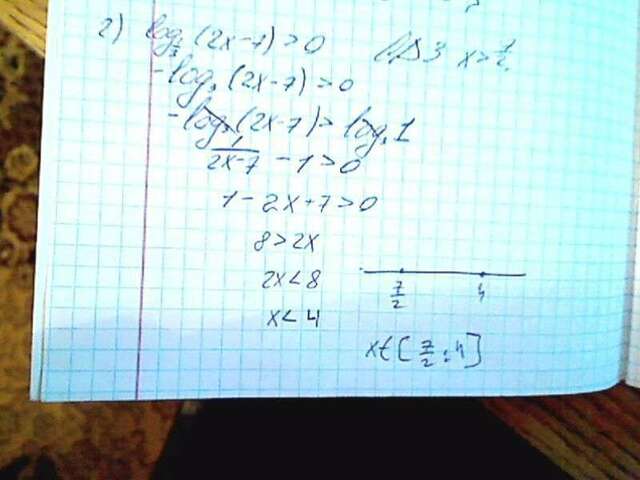 2) log_{1/3} (2x-7) > 0 ОДЗ x > 7/2
-log_3 (2x-7) > 0
-log_3 (2x-7) > log_3 1
1/(2x-7) - 1 > 0
1 - 2x + 7 > 0
8 > 2x
2x < 8
x < 4
7/2 4
x ∈ [7/2; 4]